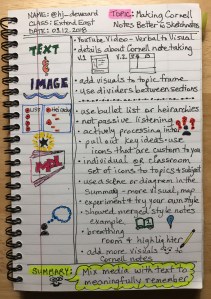 NAME: @hj_dewaard
CLASS: Extend East
DATE: 03.12.2018
TOPIC: Making Cornell
Notes Better in Sketchnotes
TEXT
IMAGE
• YouTube Video - Verbal to Visual
• details about Cornell note taking
V.1 V.2
• add visuals to topic frame
• use dividers between sections
• use bullet list or hierarchies
• not passive listening
• actively processing
• pull out key ideas - use
icons that are custom to you
• individual or classroom
set of icons to topics & subject
• use a scene or diagram in the
Summary - more visual, map
• experiment & try your own style
• showed merged style notes
example
• breathing
room + highlighter
• add more visuals to
Cornell notes
SUMMARY:
Mix media with text to
meaningfully remember